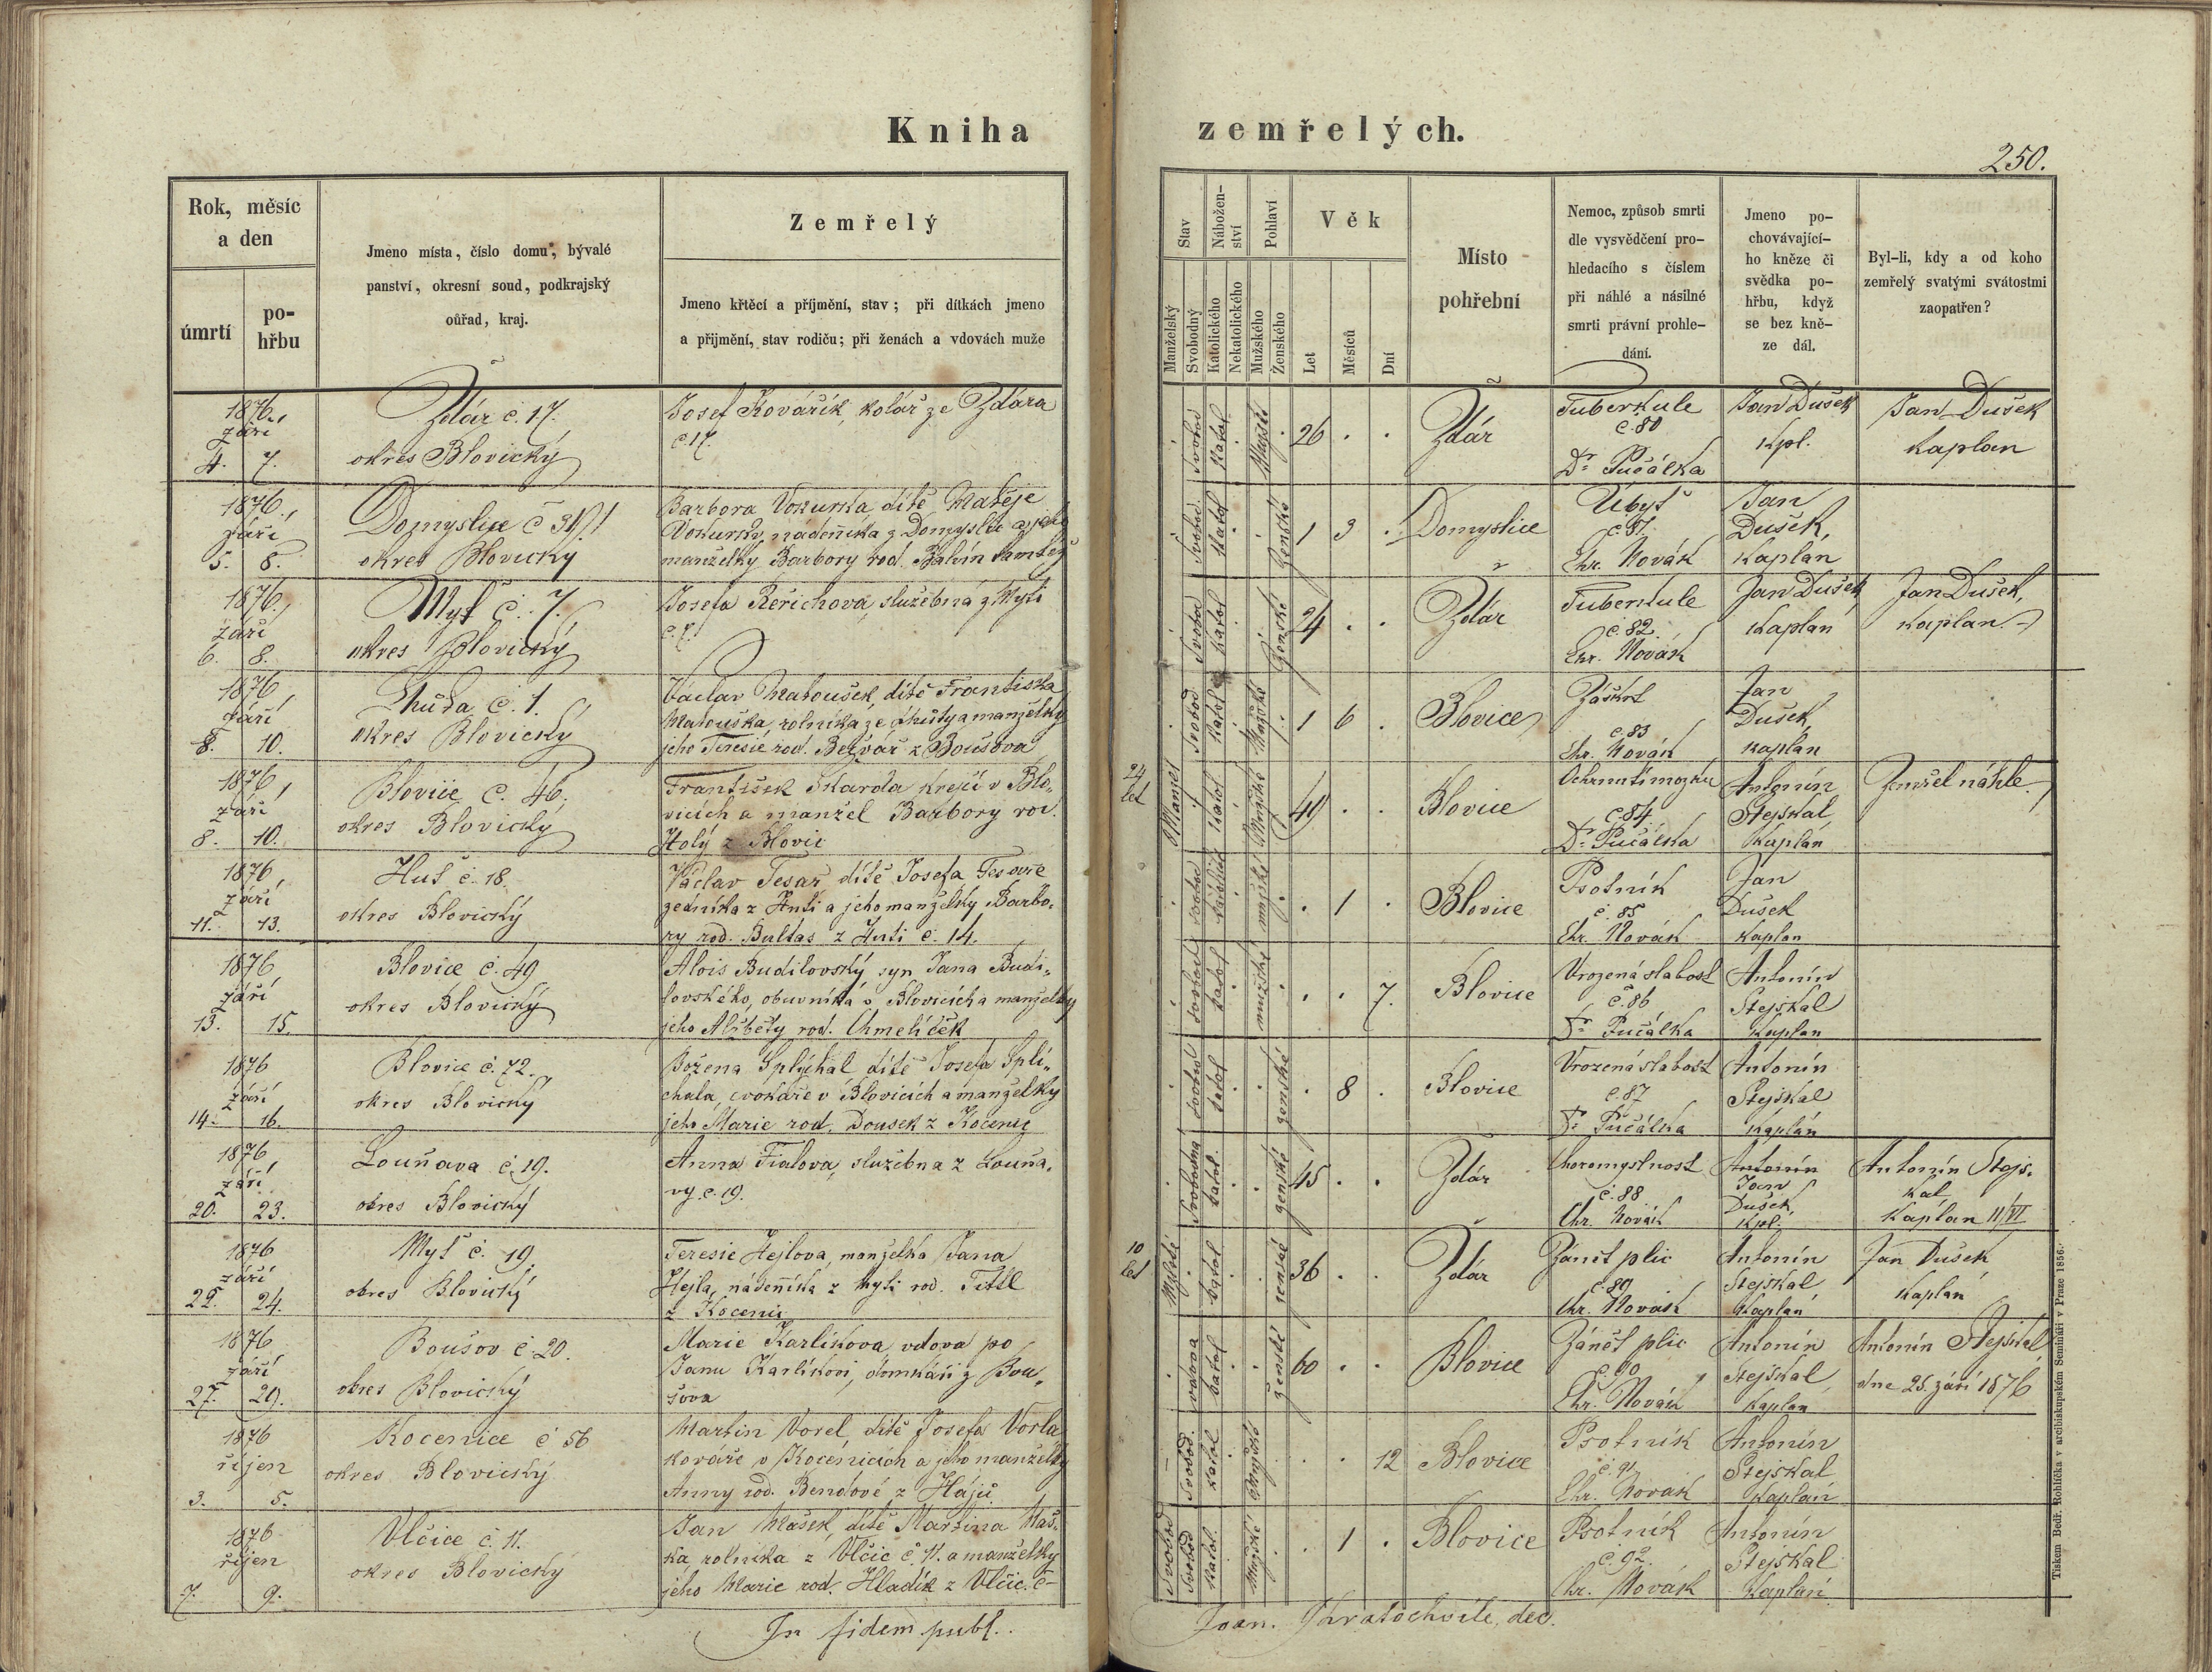 Kniha
zemřelých.
250.
Rok, měsíc
a den
úmrtí
po-
hřbu
Jmeno místa, číslo domu, bývalé
panství, okresní soud, podkrajský
ouřad, kraj.
Zemřelý
Jmeno křtěcí a příjmění, stav; při dítkách jmeno
a přijmění, stav rodičů; při ženách a vdovách muže
Stav
Manželský
Svobodný
Nábožen-
ství
Katolického
Nekatolického
Pohlaví
Mužského
Ženského
Věk
Let
Měsíců
Dní
Místo
pohřební
Nemoc, způsob smrti
dle vysvědčení pro-
hledacího s číslem
při náhlé a násilné
smrti právní prohle-
dání.
Jmeno po-
chovávající-
ho kněze či
svědka po-
hřbu, když
se bez kně-
ze dál.
Byl-li, kdy a od koho
zemřelý svatými svátostmi
zaopatřen?
1876,
září
4. 7.
Zdár č. 17.
okres Blovický
Josef Kovářík, kolář ze Zdára
č. 17.
Svobod
Katol
Mužské
26 . .
Zdár
Tuberkule
č. 80
Dr. Pučálka
Jan Dušek
Kpl.
Jan Dušek
Kaplan
1876,
září
5. 8.
Domyslice č 31
okres Blovický
Barbora Vokurka, dítě Matěje
Vokurky, nádeníka z Domyslic a jeho
manželky Barbory rod. Balvín tamtéž
Svobod.
Katol
Ženské
1 3 .
Domyslice
Úbytě
č. 81.
Chr. Novák
Jan
Dušek,
Kaplan
1876,
září
6. 8.
Myť č. 7.
okres Blovický
Josefa Řeřichová, služebná z Myti
č. 7.
Svobod
Katol
Ženské
24 . .
Zdár
Tuberkule
č. 82.
Chr. Novák
Jan Dušek
Kaplan
Jan Dušek,
Kaplan
1876,
září
8. 10.
Lhůta č. 1.
okres Blovický
Václav Matoušek, dítě Františka
Matouška, rolníka ze Lhůty a manželky
jeho Teresie rod. Bezvář z Boušova
Svobod
Katol
Mužské
1 6 .
Blovice
Záškrt
č. 83
Chr. Novák
Jan
Dušek,
Kaplan
1876,
září
8. 10.
Blovice č. 46.
okres Blovický
František Škarda krejčí v Blo-
vicích a manžel Barbory rod.
Holý z Blovic
24
let
Manžel
Katol
Mužské
49 . .
Blovice
Ochrnutí mozku
č. 84.
Dr. Pučálka
Antonín
Stejskal
Kaplán
Zemřel náhle.
1876,
září
11. 13.
Huť č. 18.
okres Blovický
Václav Tesař, dítě Josefa Tesaře
zedníka z Huti a jeho manželky Barbo-
ry rod. Bultas z Huti č. 14.
Svobod
mužské
. 1 .
Blovice
Psotník
č. 85
Chr. Novák
Jan
Dušek
Kaplan
1876
září
13. 15.
Blovice č. 49
okres Blovický
Alois Budilovský syn Jana Budi-
lovského, obuvníka v Blovicích a manželky
jeho Alžběty rod. Chmelíček
svobod
katol
mužské
. . 7.
Blovice
Vrozená slabost
č. 86
Dr. Pučálka
Antonín
Stejskal
Kaplan
1876
září
14. 16.
Blovice č. 72.
okres Blovický
Božena Splýchal dítě Josefa Splí-
chala, cvokaře v Blovicích a manželky
jeho Marie rod. Dousek z Kocenic
svobod
katol
ženské
. 8 .
Blovice
Vrozená slabost
č. 87
Dr. Pučálka
Antonín
Stejskal
Kaplán
1876
září
20. 23.
Louňava č. 19.
okres Blovický
Anna Fialova, služebna z Louňa-
vy č. 19.
Svobodná
katol.
ženské
45 . .
Zdár
Choromyslnost
č. 88
Chr. Novák
Antonín
Jan
Dušek,
Kpl.
Antonín Stejs-
kal,
Kaplan 11/VI
1876
září
22. 24.
Myť č. 19.
okres Blovický
Teresie Hejlova, manželka Jana
Hejla, nádeníka z Myti rod. Tittl
z Kocenic
10
let
katol
ženské
36 . .
Zdár
Zánět plic
č. 89
Chr. Novák
Antonín
Stejskal
Kaplan
Jan Dušek
Kaplán
1876
září
27. 29.
Boušov č. 20.
okres Blovický
Marie Karlíkova, vdova po
Janu Karlíkovi, domkáři z Bou-
šova
vdova
katol
ženské
60 . .
Blovice
Zánět plic
č. 90
Chr. Novák
Antonín
Stejskal
Kaplan
Antonín Stejskal
dne 25. září 1876
1876
říjen
3. 5.
Kocenice č 56
okres Blovický
Martin Vorel, dítě Josefa Vorla
kováře v Kocenicích a jeho manželky
Anny rod. Bendové z Hájů
Svobod.
Katol
Mužské
. . 12
Blovice
Psotník
č. 91
Chr. Novák
Antonín
Stejskal
Kaplan
1876
říjen
7. 9.
Vlčice č. 11.
okres Blovický
Jan Mašek, dítě Martina Maš-
ka rolníka z Vlčic č. 11. a manželky
jeho Marie rod. Hladík z Vlčic. č-
Svobod
Katol.
Mužské
. 1 .
Blovice
Psotník
č. 92.
Chr. Novák
Antonín
Stejskal
Kaplan
In fidem publ.
Joan. Chratochvíle, dec.
Tiskem Bedř. Rohlíčka v arcibiskupském Semináři v Praze 1856.